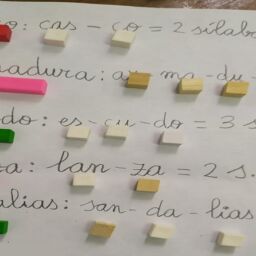 o: cas - co = 2 silab
adura: ar - ma - du -
do: es - cu - do = 3 s
a: lan - za = 2 s.
alias: san - da - lias